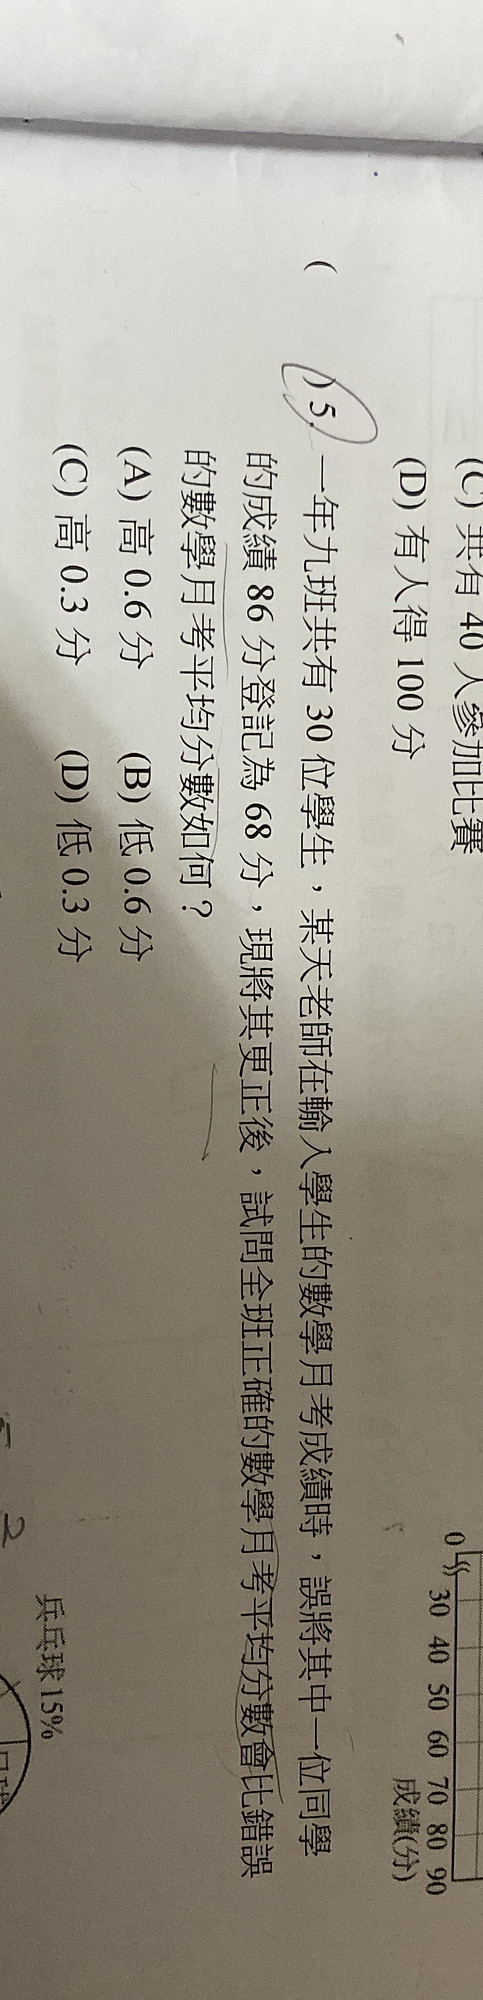 (C) 共有 40 人參加比賽
(D) 有人得 100 分
0 30 40 50 60 70 80 90
成績(分)
( ) 5. 一年九班共有 30 位學生，某天老師在輸入學生的數學月考成績時，誤將其中一位同學
的成績 86 分登記為 68 分，現將其更正後，試問全班正確的數學月考平均分數會比錯誤
的數學月考平均分數如何？
(A) 高 0.6 分 (B) 低 0.6 分
(C) 高 0.3 分 (D) 低 0.3 分
兵乓球 15%
2